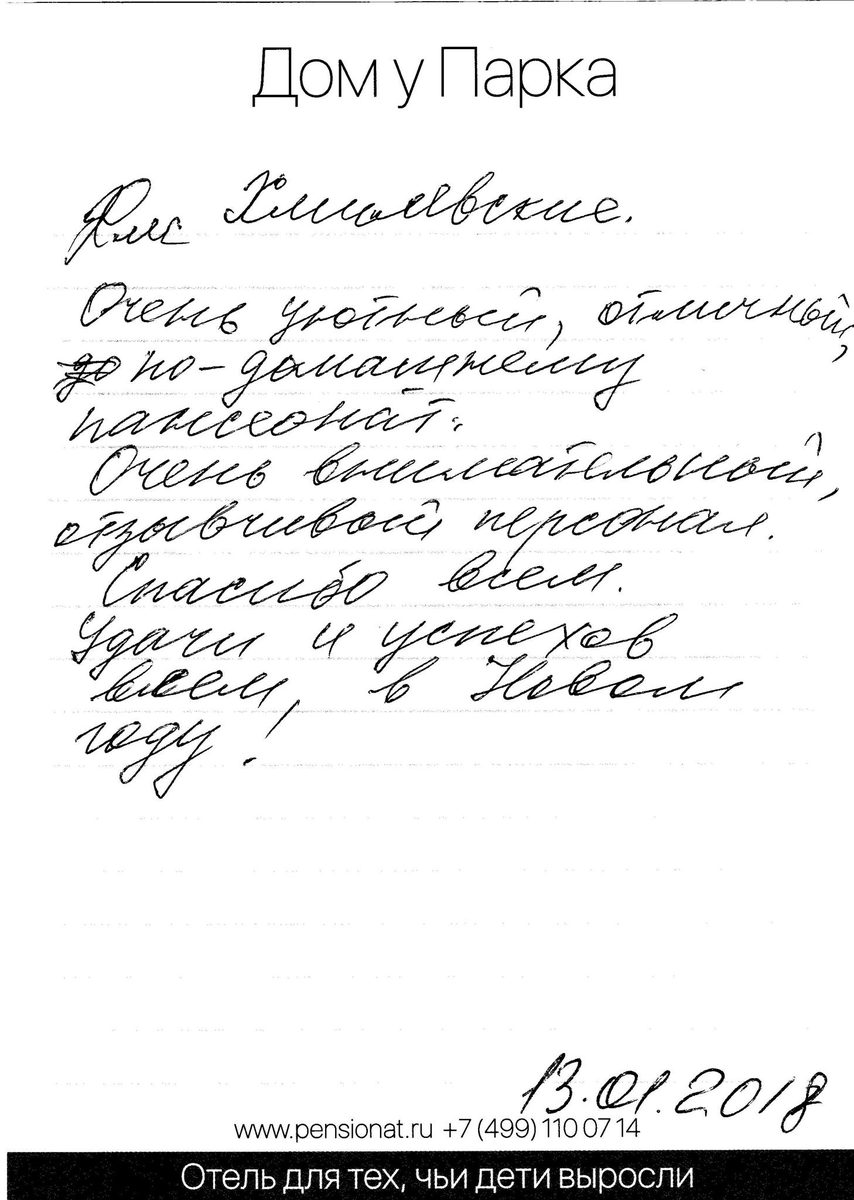 Дом у Парка
Хмилевские.
Очень уютный, отличный,
по-домашнему
пансеонат.
Очень внимательной,
отзывчивой персонал.
Спасибо всем.
Удачи и успехов
всем, в Новом
году!
13.01.2018
www.pensionat.ru +7 (499) 110 07 14
Отель для тех, чьи дети выросли